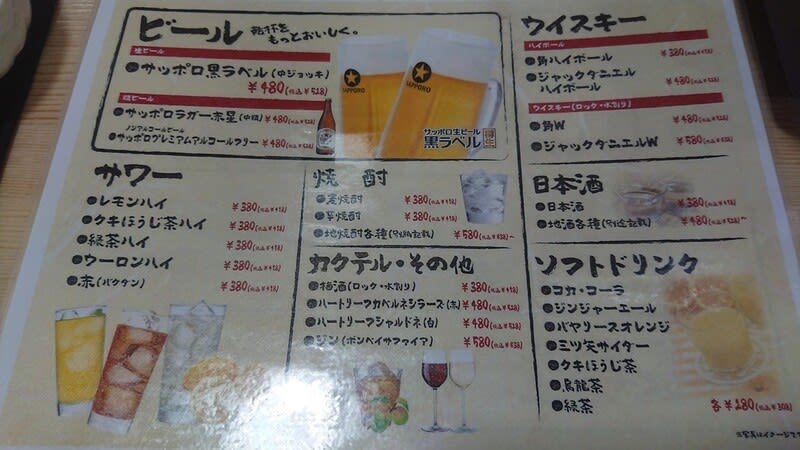 ビール
乾杯を
もっとおいしく。
生ビール
●サッポロ黒ラベル(中ジョッキ)
¥480(税込¥528)
瓶ビール
●サッポロラガー赤星(中瓶) ¥480(税込¥528)
ノンアルコールビール
●サッポロプレミアムアルコールフリー ¥480(税込¥528)
SAPPORO
SAPPORO
サッポロ生ビール
黒ラベル
サワー
●レモンハイ ¥380(税込¥418)
●クキほうじ茶ハイ ¥380(税込¥418)
●緑茶ハイ ¥380(税込¥418)
●ウーロンハイ ¥380(税込¥418)
●赤(バクダン) ¥380(税込¥418)
焼酎
●麦焼酎 ¥380(税込¥418)
●芋焼酎 ¥380(税込¥418)
●地焼酎各種(別途記載) ¥580(税込¥638)~
カクテル・その他
●梅酒(ロック・水割り) ¥380(税込¥418)
●ハートリーフカベルネシラーズ(赤) ¥480(税込¥528)
●ハートリーフシャルドネ(白) ¥480(税込¥528)
●ジン(ボンベイサファイア) ¥580(税込¥638)
ウイスキー
ハイボール
●角ハイボール ¥380(税込¥418)
●ジャックダニエル
ハイボール ¥480(税込¥528)
ウイスキー(ロック・水割り)
●角W ¥480(税込¥528)
●ジャックダニエルW ¥580(税込¥638)
日本酒
●日本酒 ¥380(税込¥418)
●地酒各種(別途記載) ¥480(税込¥528)~
ソフトドリンク
●コカ・コーラ
●ジンジャーエール
●バヤリースオレンジ
●ミツ矢サイダー
●クキほうじ茶
●烏龍茶
●緑茶 各¥280(税込¥308)
※写真はイメージです